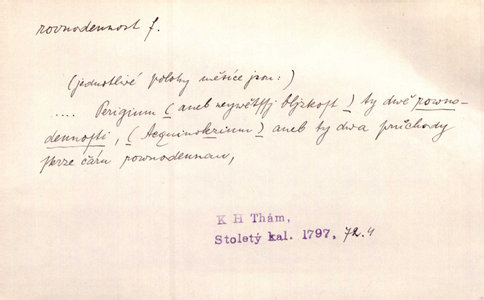 rovnodennost f.
(jednotlivé polohy měsíce jsou:)
.... Perigium (aneb neywětssj bljzkost) ty dwě rowno-
dennosti, (Aequinokcium) aneb ty dwa průchody
skrze čáru rownodennau,
K H Thám,
Stoletý kal. 1797, 72.4